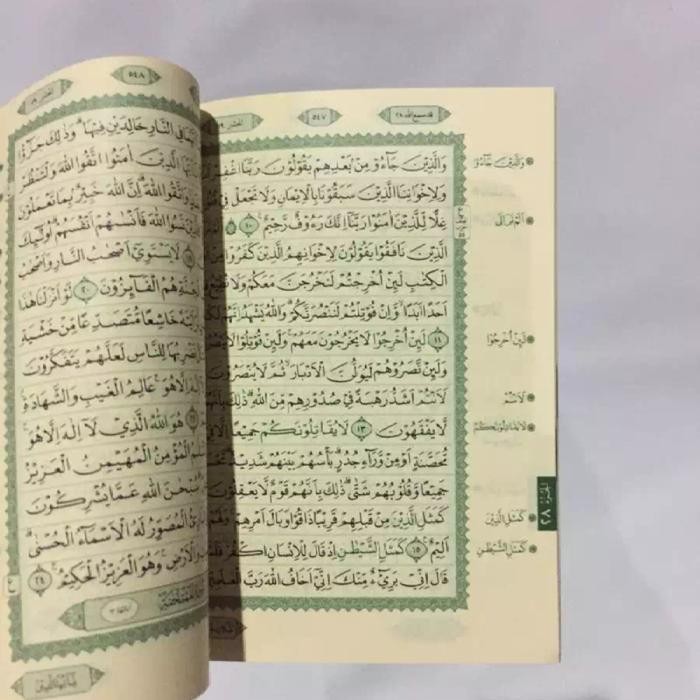 قد سمع الله ٢٨
٥٤٧
وَالَّذِينَ جَاءُو مِنْ بَعْدِهِمْ يَقُولُونَ رَبَّنَا اغْفِرْ
وَلِإِخْوَانِنَا الَّذِينَ سَبَقُونَا بِالْإِيمَانِ وَلَا تَجْعَلْ فِي
غِلًّا لِلَّذِينَ آمَنُوا رَبَّنَا إِنَّكَ رَءُوفٌ رَحِيمٌ ١٠
الَّذِينَ نَافَقُوا يَقُولُونَ لِإِخْوَانِهِمُ الَّذِينَ كَفَرُوا
الْكِتٰبِ لَئِنْ أُخْرِجْتُمْ لَنَخْرُجَنَّ مَعَكُمْ وَلَا نُطِيعُ
أَحَدًا أَبَدًا وَإِنْ قُوتِلْتُمْ لَنَنْصُرَنَّكُمْ وَاللّٰهُ يَشْهَدُ إِنَّهُمْ
١١ لَئِنْ أُخْرِجُوا لَا يَخْرُجُونَ مَعَهُمْ وَلَئِنْ قُوتِلُوا لَا
وَلَئِنْ نَصَرُوهُمْ لَيُوَلُّنَّ الْأَدْبَارَ ثُمَّ لَا يُنْصَرُونَ
لَأَنْتُمْ أَشَدُّ رَهْبَةً فِي صُدُورِهِمْ مِنَ اللّٰهِ ذٰلِكَ بِأَنَّهُمْ
لَا يَفْقَهُونَ ١٣ لَا يُقَاتِلُونَكُمْ جَمِيعًا
مُحَصَّنَةٍ أَوْ مِنْ وَرَاءِ جُدُرٍ بَأْسُهُمْ بَيْنَهُمْ شَدِيدٌ
جَمِيعًا وَقُلُوبُهُمْ شَتّٰى ذٰلِكَ بِأَنَّهُمْ قَوْمٌ لَا يَعْقِلُونَ
كَمَثَلِ الَّذِينَ مِنْ قَبْلِهِمْ قَرِيبًا ذَاقُوا وَبَالَ أَمْرِهِمْ وَلَهُمْ
أَلِيمٌ ١٥ كَمَثَلِ الشَّيْطٰنِ إِذْ قَالَ لِلْإِنْسَانِ اكْفُرْ
قَالَ إِنِّي بَرِيءٌ مِنْكَ إِنِّي أَخَافُ اللّٰهَ رَبَّ الْعَالَمِينَ
وَالَّذِينَ جَاءُو
أَلَمْ تَرَ إِلَى
لَئِنْ أُخْرِجُوا
لَأَنْتُمْ
لَا يُقَاتِلُونَكُمْ
الجزء ٢٨
كَمَثَلِ الَّذِينَ
كَمَثَلِ الشَّيْطٰنِ
٥٤٨
فِي النَّارِ خَالِدَيْنِ فِيهَا وَذٰلِكَ جَزٰؤُا
الَّذِينَ آمَنُوا اتَّقُوا اللّٰهَ وَلْتَنْظُرْ
وَاتَّقُوا اللّٰهَ إِنَّ اللّٰهَ خَبِيرٌ بِمَا تَعْمَلُونَ
نَسُوا اللّٰهَ فَأَنْسٰىهُمْ أَنْفُسَهُمْ أُولٰئِكَ
لَا يَسْتَوِي أَصْحٰبُ النَّارِ وَأَصْحٰبُ
هُمُ الْفَائِزُونَ ٢٠ لَوْ أَنْزَلْنَا هٰذَا
خَاشِعًا مُتَصَدِّعًا مِنْ خَشْيَةِ
نَضْرِبُهَا لِلنَّاسِ لَعَلَّهُمْ يَتَفَكَّرُونَ
إِلٰهَ إِلَّا هُوَ عَالِمُ الْغَيْبِ وَالشَّهَادَةِ
هُوَ اللّٰهُ الَّذِي لَا إِلٰهَ إِلَّا هُوَ
الْمُؤْمِنُ الْمُهَيْمِنُ الْعَزِيزُ
سُبْحٰنَ اللّٰهِ عَمَّا يُشْرِكُونَ
الْمُصَوِّرُ لَهُ الْأَسْمَاءُ الْحُسْنٰى
وَالْأَرْضِ وَهُوَ الْعَزِيزُ الْحَكِيمُ ٢٤